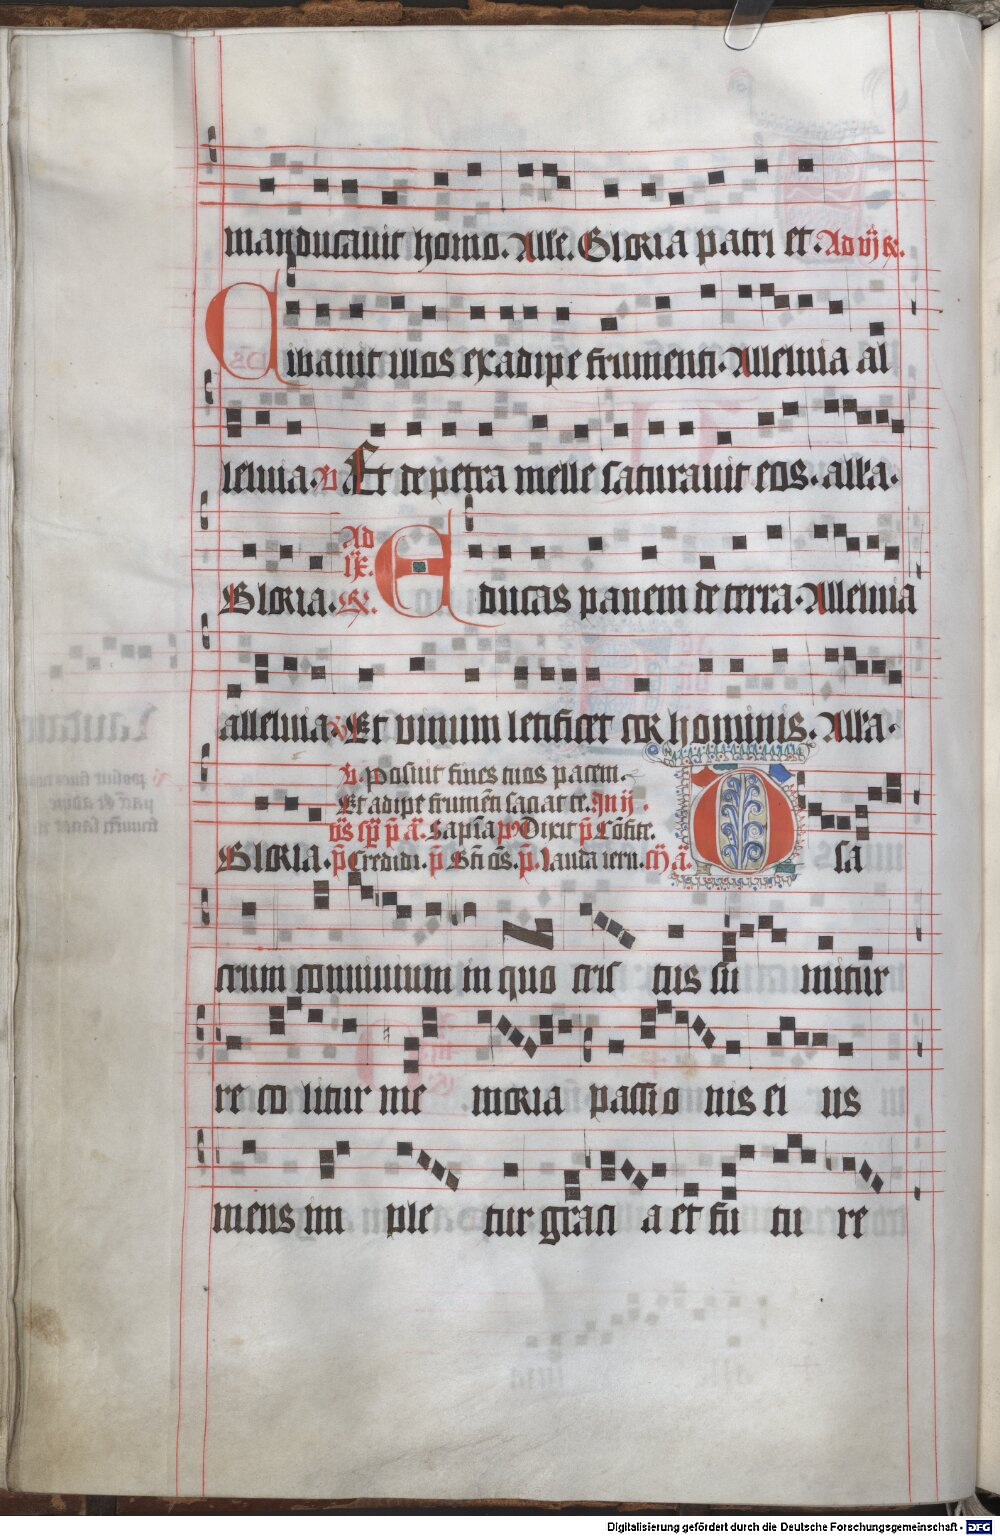 manducauit homo. Alle. Gloria patri et. Ad vj R.
Cibauit illos ex adipe frumenti. Alleluia al
leluia. V. Et de petra melle saturauit eos. alla.
Gloria. Ad ix. R. Educas panem de terra. Alleluia
alleluia. V. Et vinum letificet cor hominis. Alla.
V. Posuit fines tuos pacem.
Et adipe frumen saciat te. In ij
Gloria. p̄ Credidi. p̄ Bti oēs. p̄. Lauda ierlm. O sa
crum conuiuium in quo cris tus su mitur
re co litur me moria passio nis ei us
mens im ple tur graci a et fu tu re
Digitalisierung gefördert durch die Deutsche Forschungsgemeinschaft - DFG